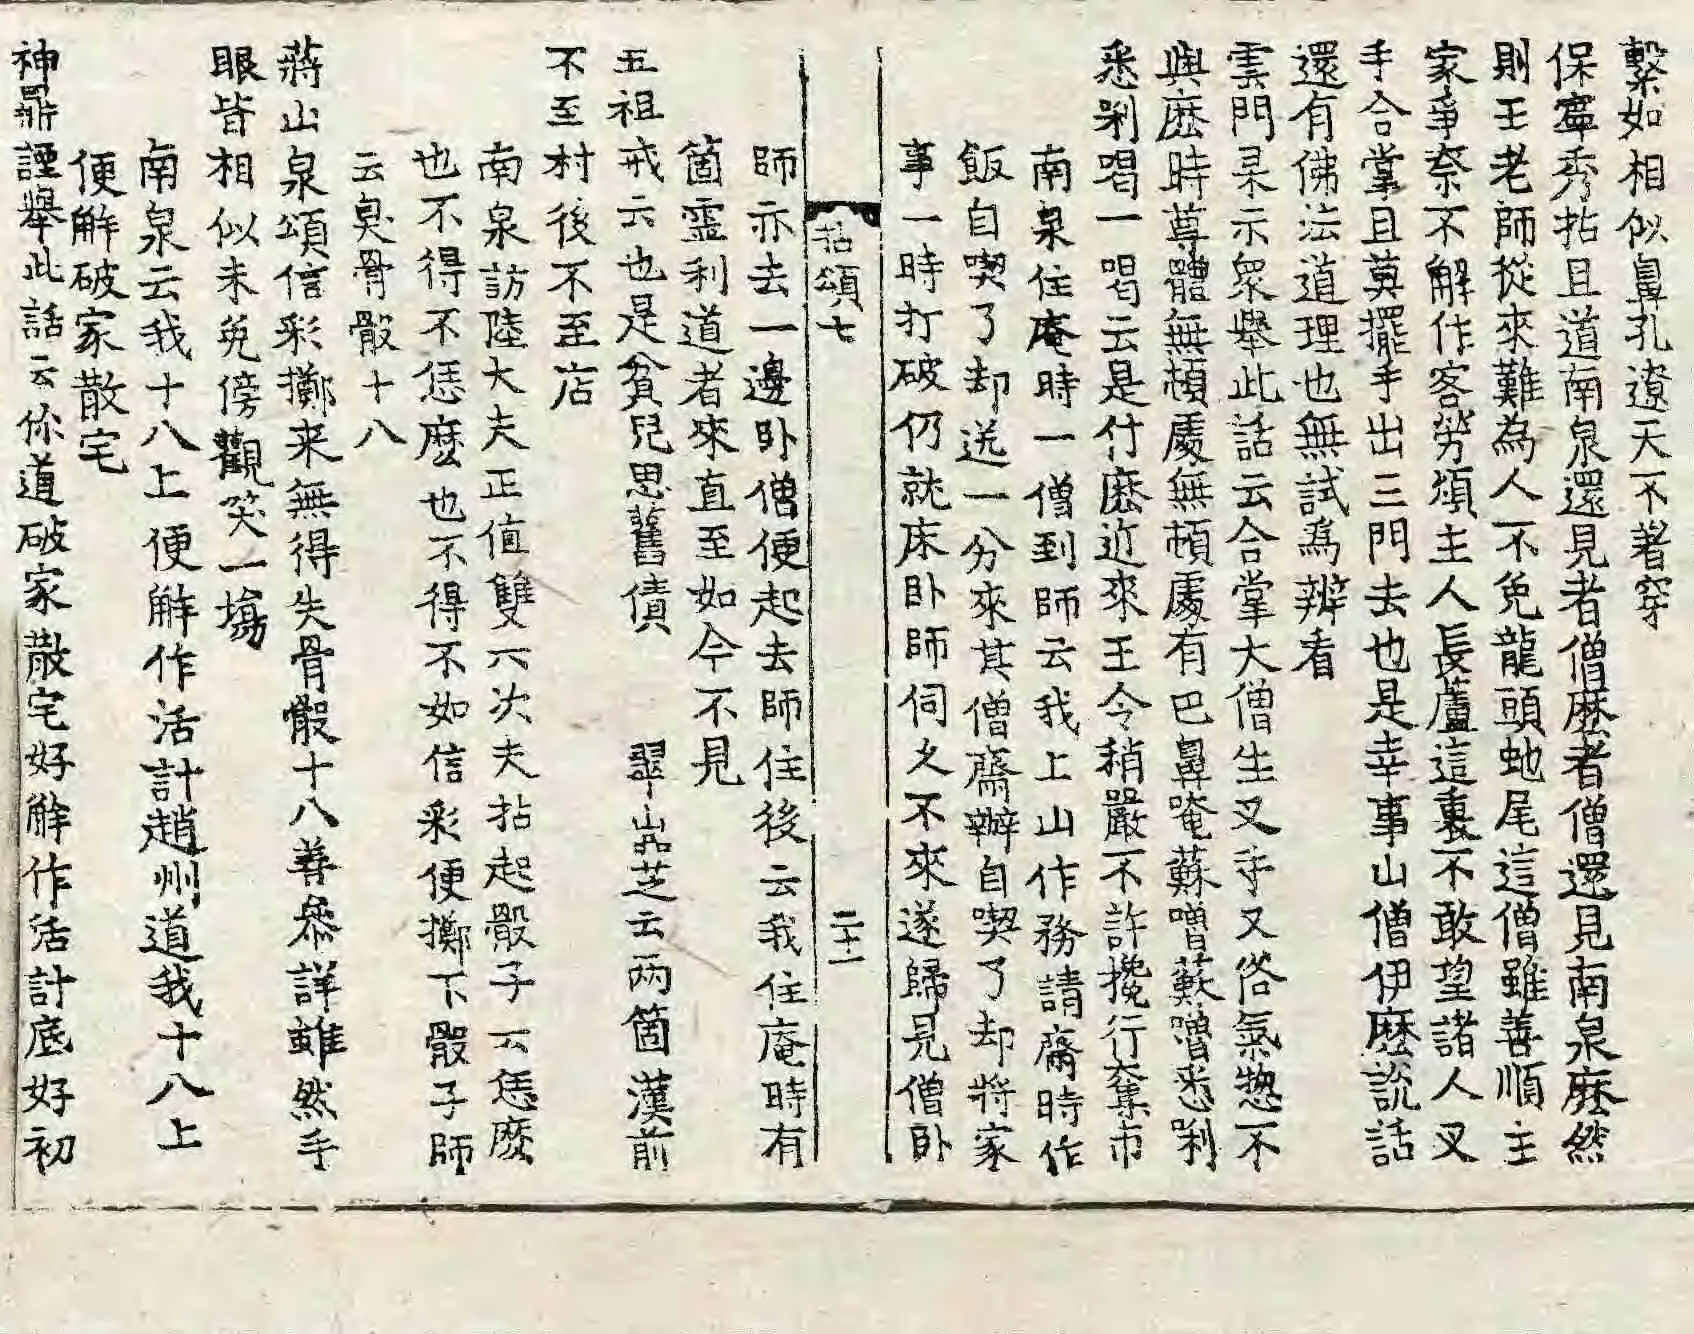 繫如相似鼻孔遼天不著穿
保寧秀拈且道南泉還見者僧麽者僧還見南泉麽然
則王老師從來難為人不免龍頭虵尾這僧雖善順主
家爭奈不解作客勞煩主人長蘆這裏不敢望諸人叉
手合掌且莫擺手出三門去也是幸事山僧伊麽說話
還有佛法道理也無試為辨看
雲門杲示衆舉此話云合掌大僧生叉手又俗氣惣不
與麽時尊體無頓處無頓處有巴鼻唵蘇嚕蘇嚕悉唎
悉唎喝一喝云是什麽近來王令稍嚴不許攙行奪市
南泉住庵時一僧到師云我上山作務請齋時作
飯自喫了却送一分來其僧齋辦自喫了却將家
事一時打破仍就床卧師伺久不來遂歸見僧卧
拈頌七
二十一
師亦去一邊卧僧便起去師住後云我住庵時有
箇靈利道者來直至如今不見
五祖戒云也是貧兒思舊債 翠嵓芝云兩箇漢前
不至村後不至店
南泉訪陸大夫正値雙六次夫拈起骰子云恁麽
也不得不恁麽也不得不如信彩便擲下骰子師
云臭骨骰十八
蔣山泉頌信彩擲来無得失骨骰十八善叅詳雖然手
眼皆相似未免傍觀笑一塲
南泉云我十八上便解作活計趙州道我十八上
便解破家散宅
神鼎諲舉此話云你道破家散宅好解作活計底好初